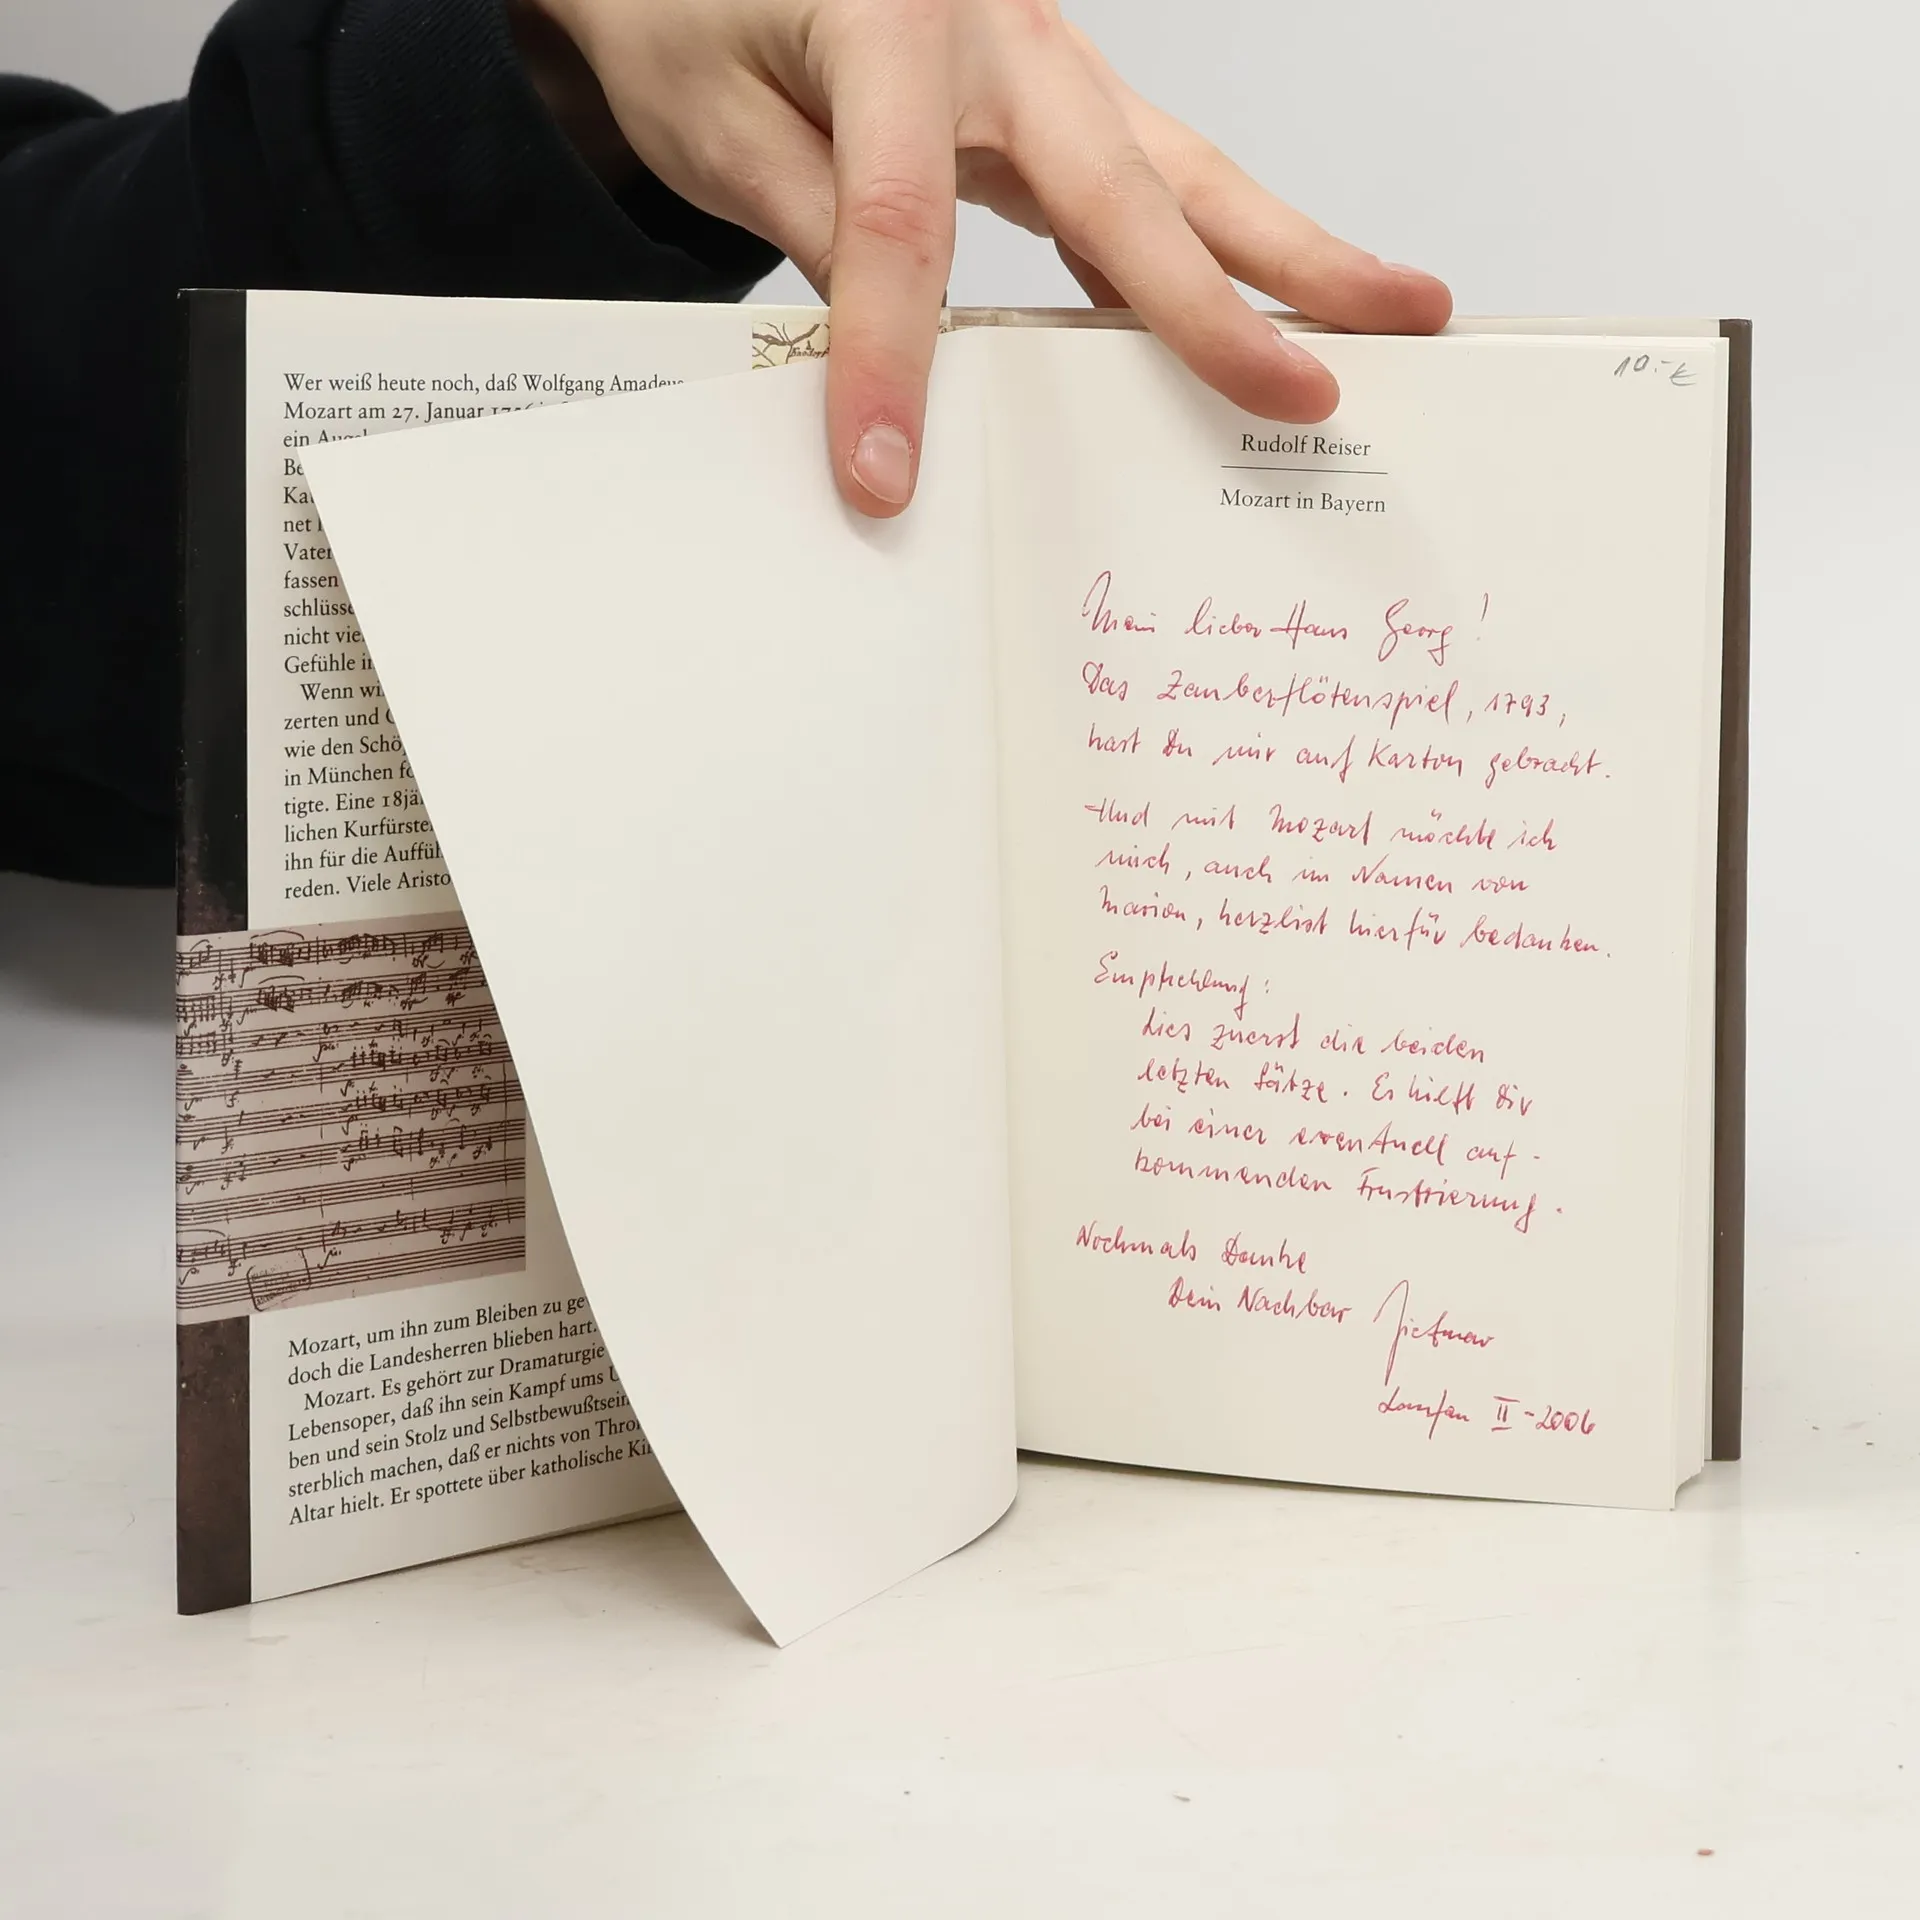 Wer weiß heute noch, daß Wolfgang Amadeus
Mozart am 27. Januar
ein
net
Vater
fassen
nicht
Gefühle
Wenn
zerten und
wie den
in München
tigte. Eine 18jä
lichen Kurfürste
ihn für die Auffüh
reden. Viele Aristo
Mozart, um ihn zum Bleiben zu ge
doch die Landesherren blieben hart.
Mozart. Es gehört zur Dramaturgie
Lebensoper, daß ihn sein Kampf ums
ben und sein Stolz und Selbstbewußtsein
sterblich machen, daß er nichts von Thron
Altar hielt. Er spottete über katholische
10.- €
Rudolf Reiser
Mozart in Bayern
Mein lieber Hans Georg!
Das Zauberflötenspiel, 1793,
hast Du mir auf Karton gebracht.
Und mit Mozart möchte ich
mich, auch im Namen von
Marion, herzlist hierfür bedanken.
Empfehlung:
Lies zuerst die beiden
letzten Sätze. Es hilft Dir
bei einer eventuell auf-
kommenden Frustrierung.
Nochmals Danke
Dein Nachbar Dietmar
Laufen II-2006